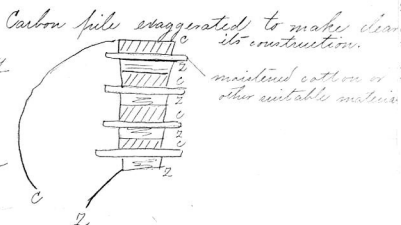 Carbon pile exaggerated to make clear
its construction.
C
Z
moistened cotton or
other suitable material
C
Z
C
Z
C
Z
C
Z